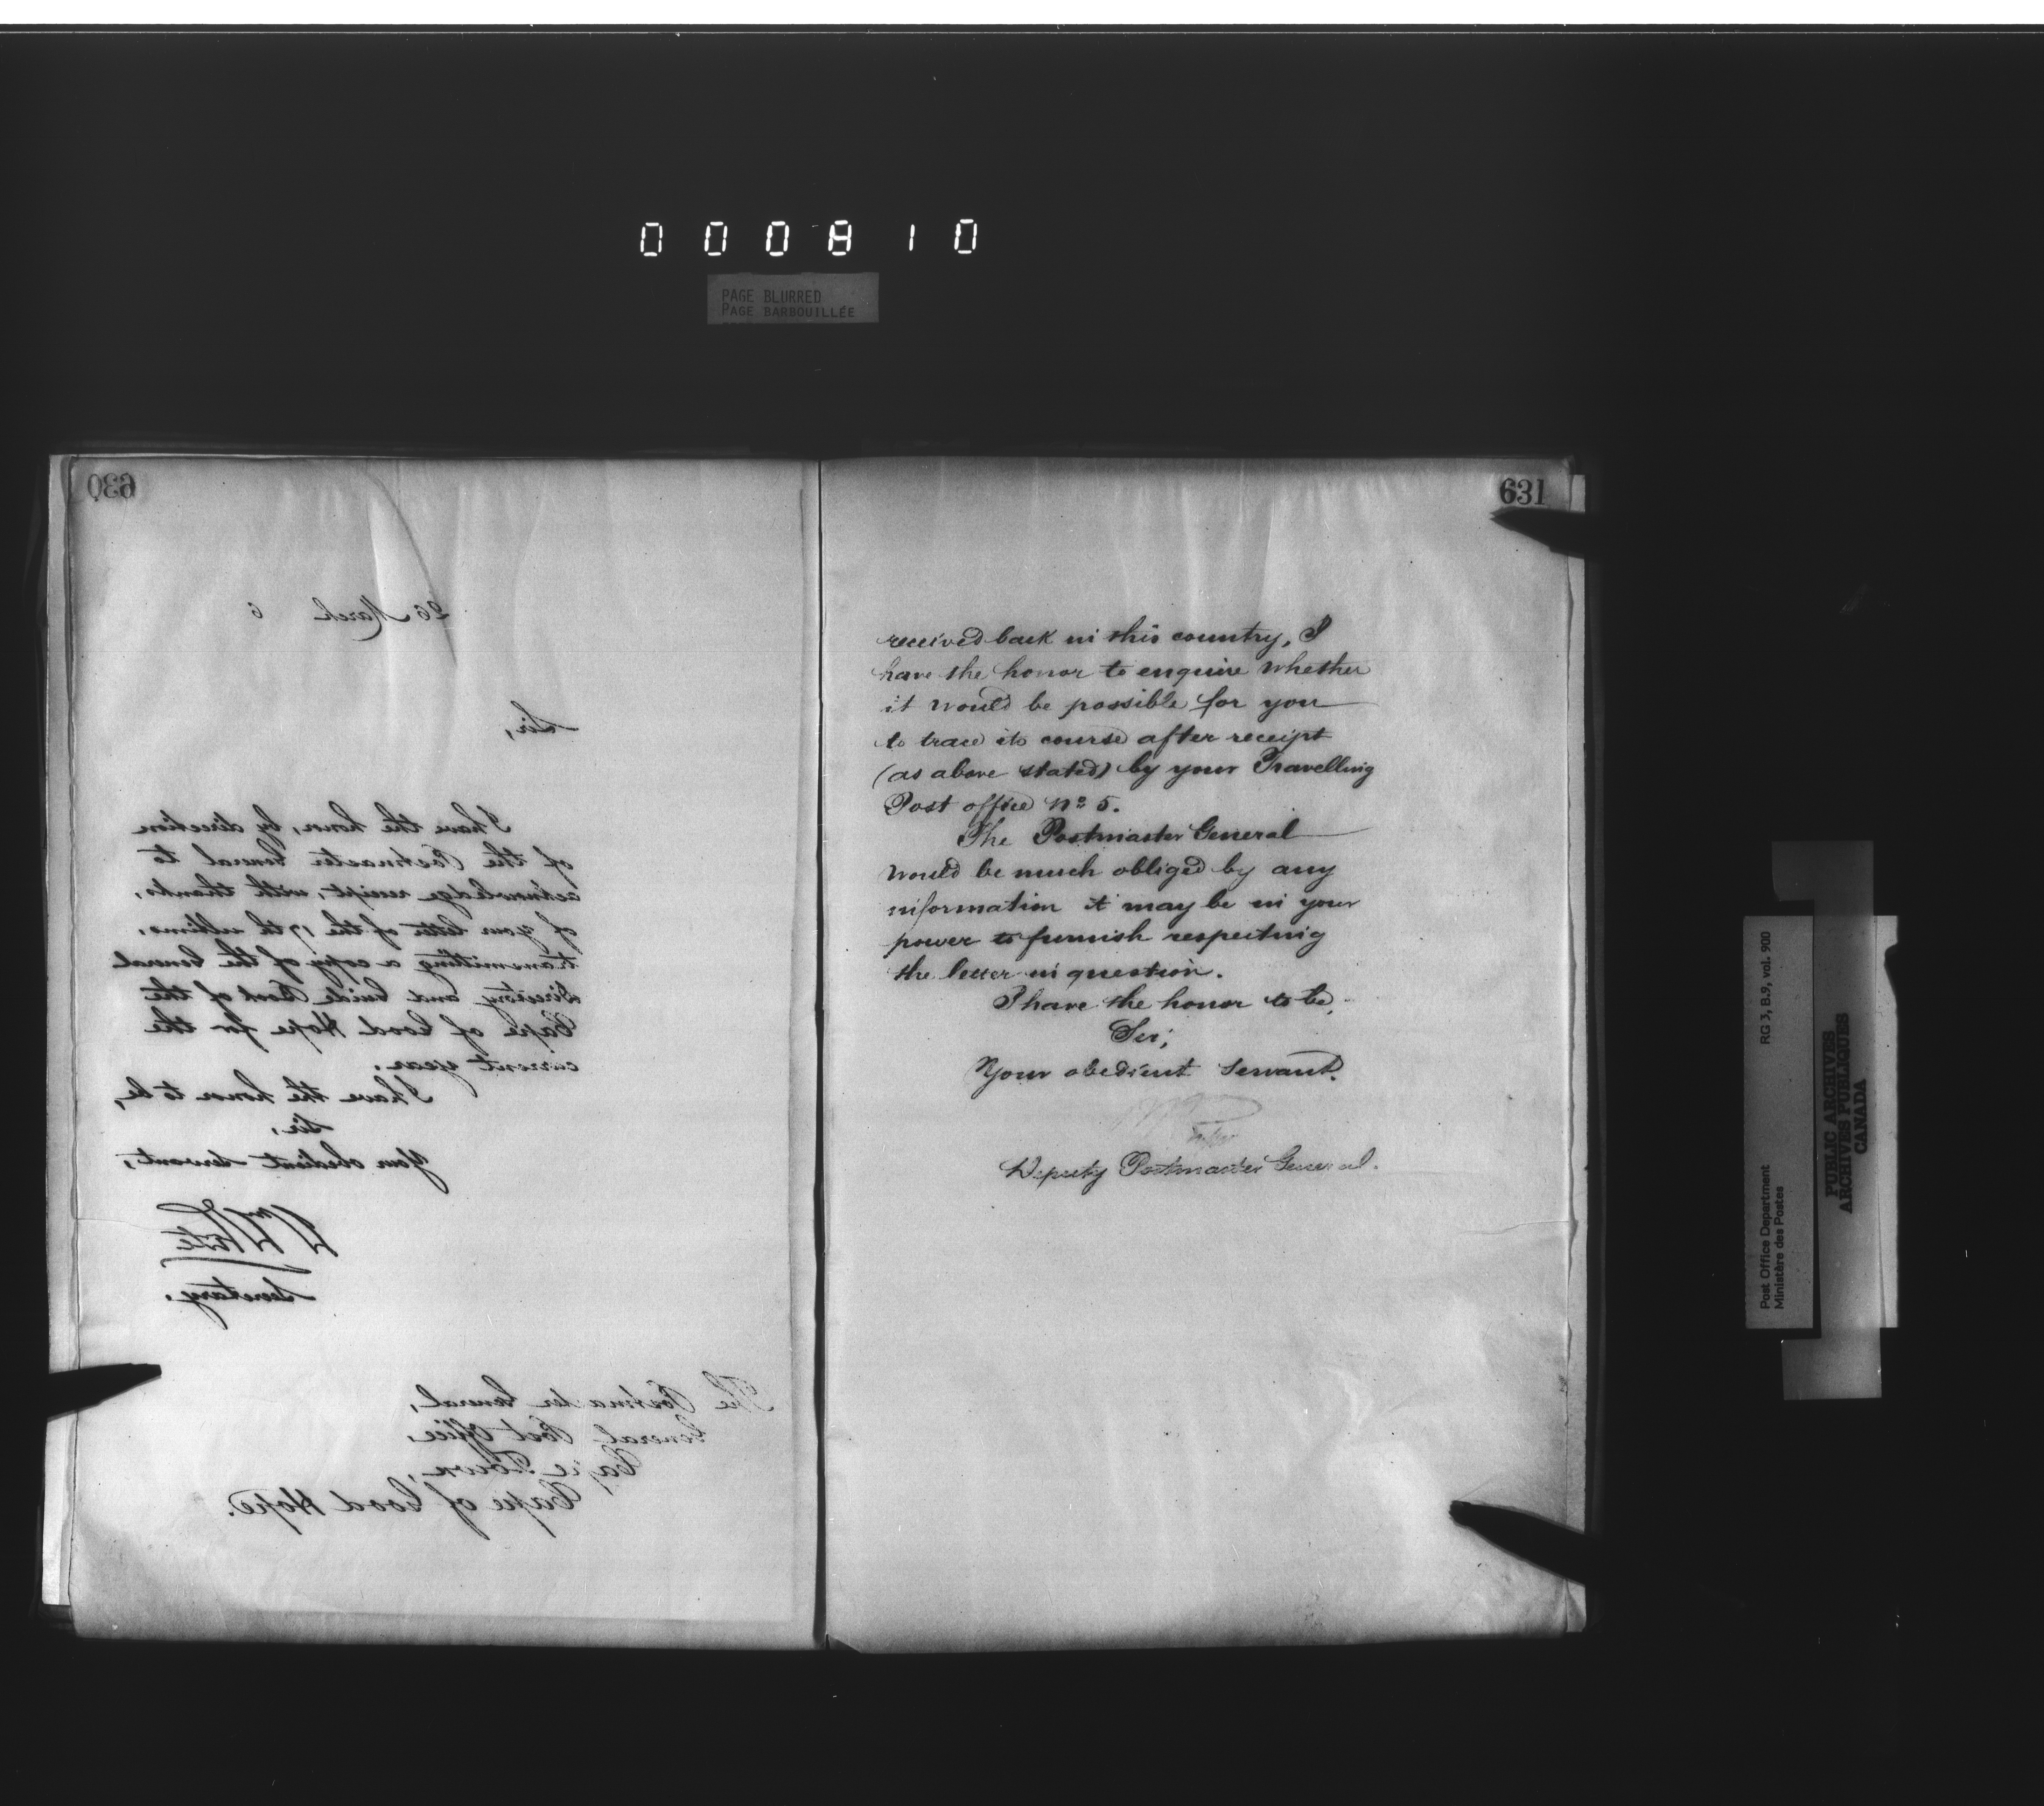 000810
PAGE BLURRED
PAGE BARBOUILLÉE
630
26 March 6
Sir,
I have the honor, by direction
of the Postmaster General to
acknowledge receipt, with thanks,
of your letter of the 17th ultimo,
transmitting a copy of the General
Directory and Guide Book of the
Cape of Good Hope for the
current year.
I have the honor to be,
Sir,
Your obedient servant,
Wm White
Secretary.
The Postmaster General,
General Post Office,
Cape Town,
Cape of Good Hope.
631
received back in this country, I
have the honor to enquire whether
it would be possible for you
to trace its course after receipt
(as above stated) by your Travelling
Post office No 5.
The Postmaster General
would be much obliged by any
information it may be in your
power to furnish respecting
the letter in question.
I have the honor to be,
Sir,
Your obedient servant.
Deputy Postmaster General.
RG 3, B.9, vol. 900
Post Office Department
Ministère des Postes
PUBLIC ARCHIVES
ARCHIVES PUBLIQUES
CANADA